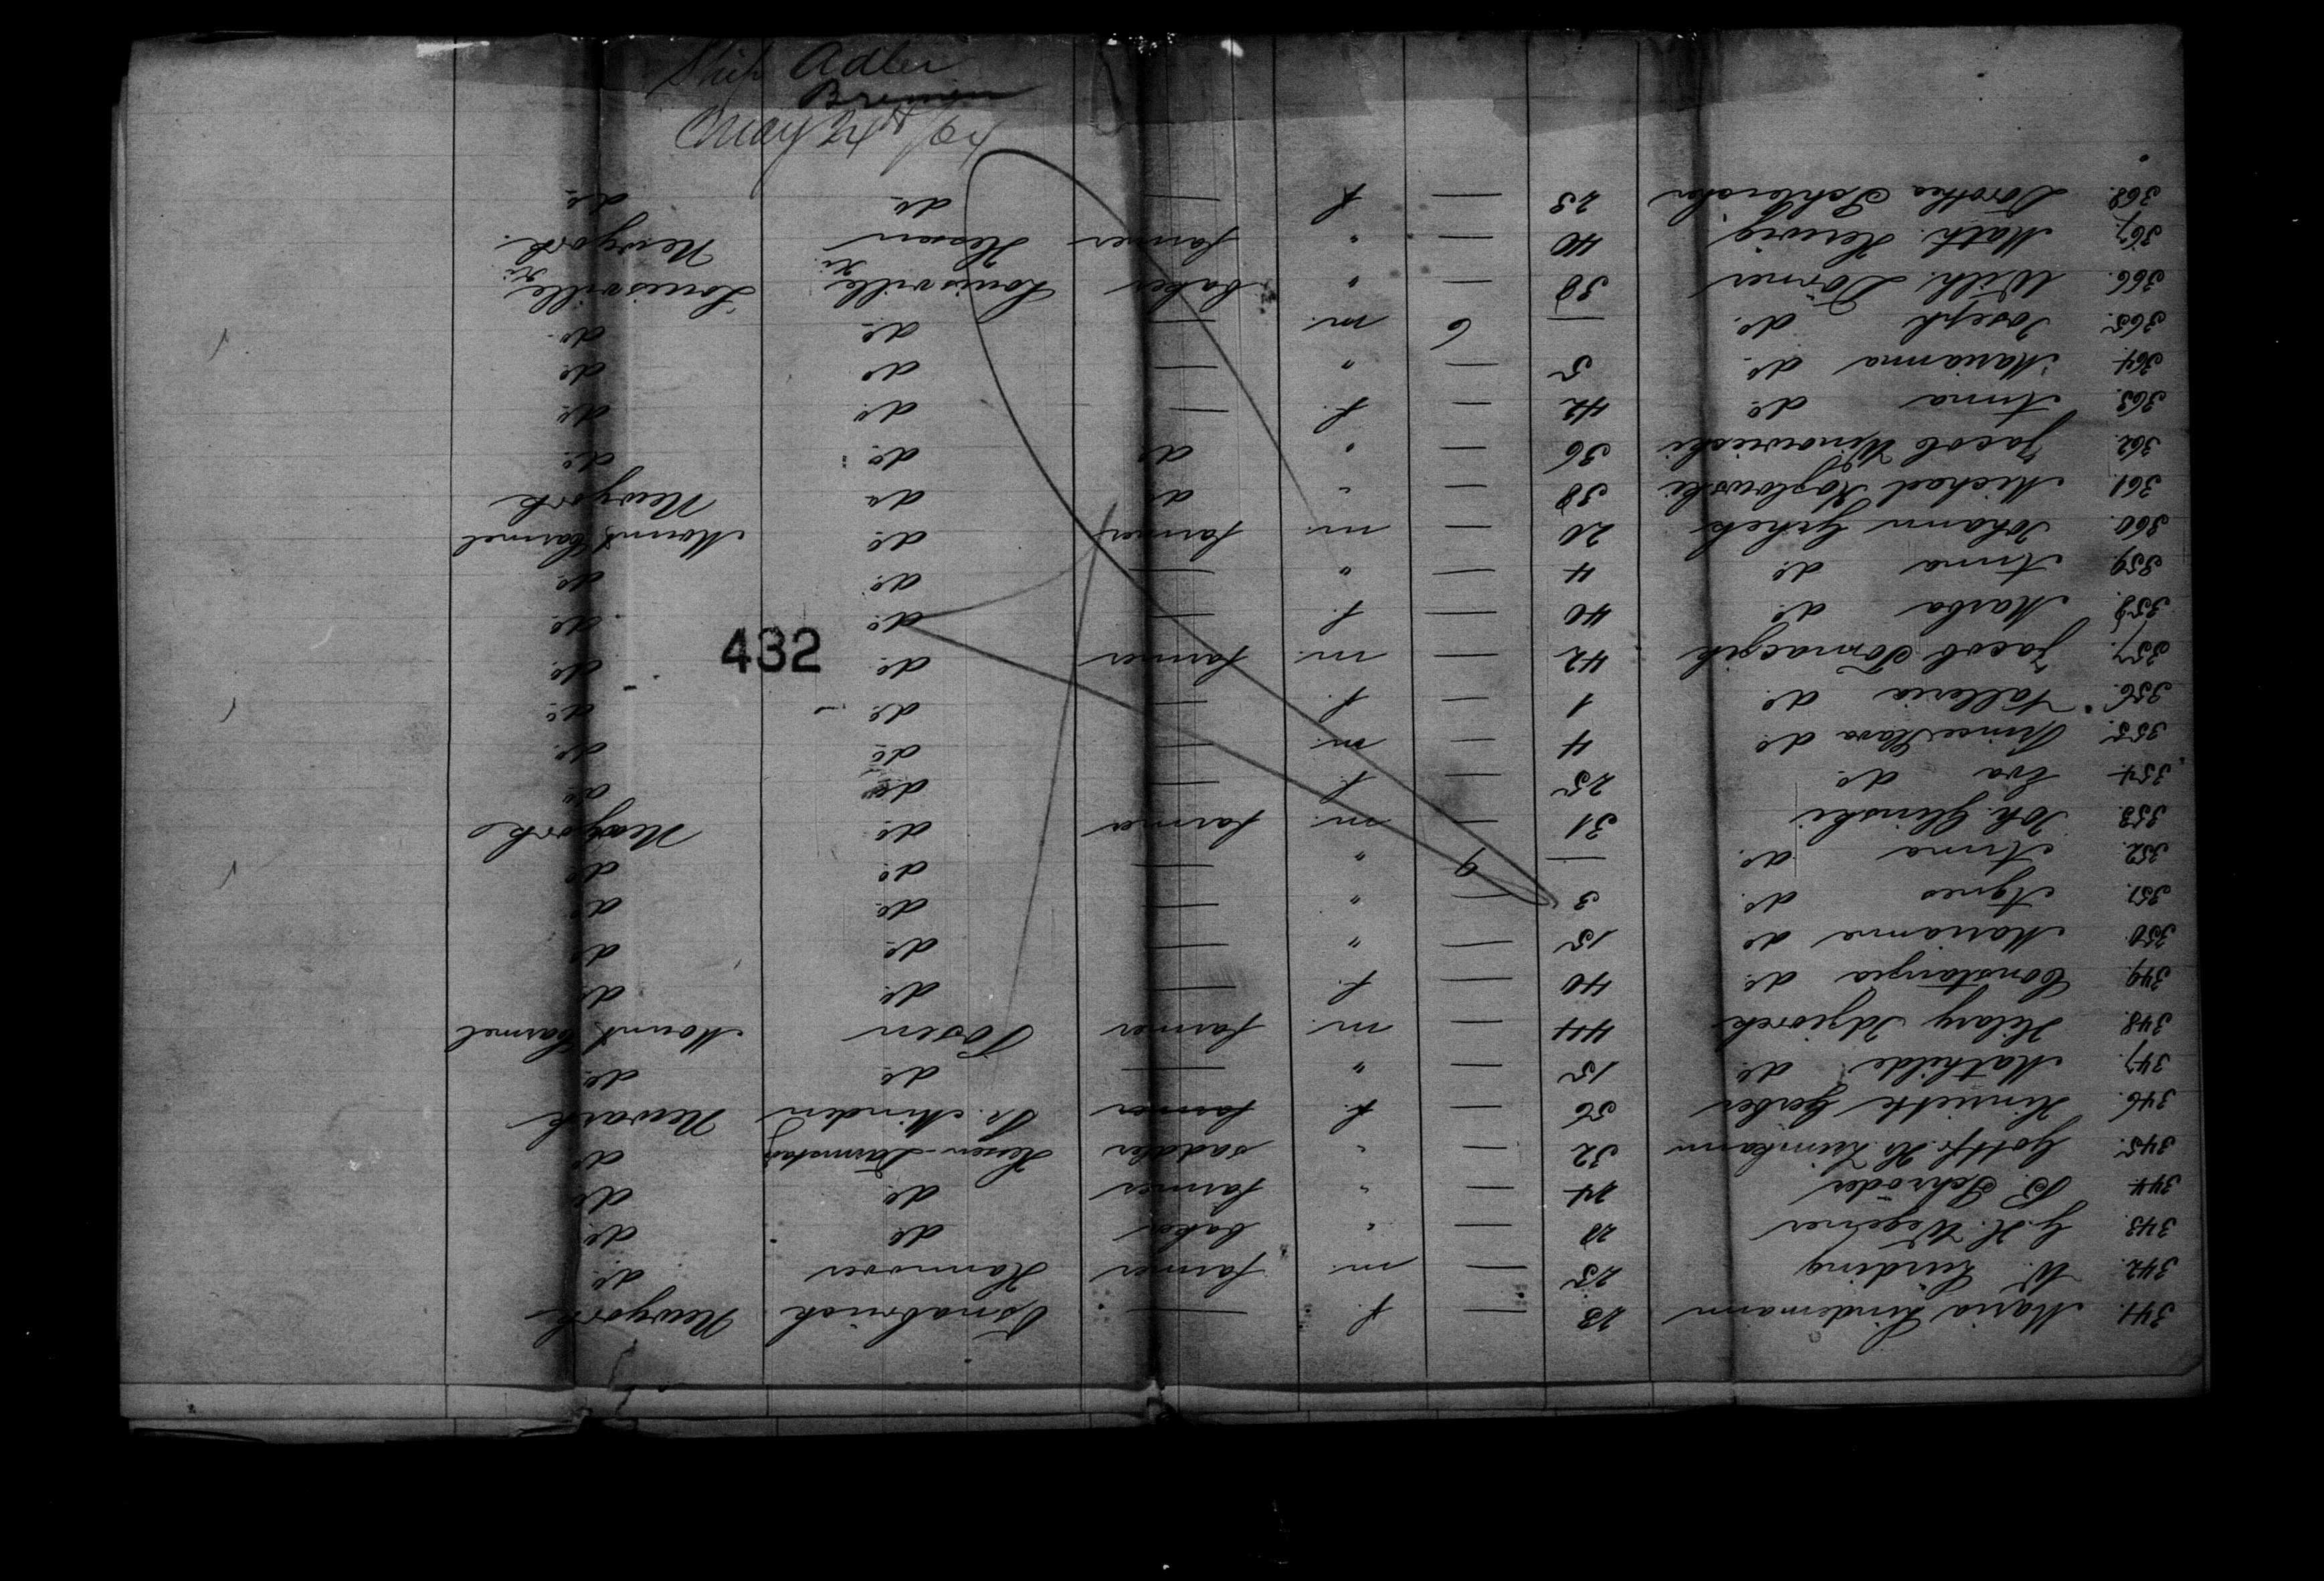 Ship Adler
Bremen
May 24th /64
432
341. Maria Lindemann 23 — f. — Osnabrück Newyork
342. W. Lüding 25 — m. farmer Hannover do.
343. G. H. Wegener 28 — " baker do. do.
344. B. Schröder 24 — " farmer do. do.
345. Gottfr. 32 — " saddler Hessen-Darmstadt do.
346. Hinriette Gerber 56 — f. farmer Pr. Minden Newark
347. Mathilde do. 15 — " — do. do.
348. Hilary Idziorek 44 — m. farmer Posen Mount Carmel
349. Constanzia do. 40 — f. — do. do.
350. Marianne do. 15 — " — do. do.
351. Agnes do. 3 — " — do. do.
352. Anna do. — 9 " — do. do.
353. Joh. Glinski 31 — m. farmer do. Newyork
354. Eva do. 25 — f. — do. do.
355. do. 4 — m. — do. do.
356. Valleria do. 1 — f. — do. do.
357. Jacob Tomaczik 42 — m. farmer do. do.
358. Marba do. 40 — f. — do. do.
359. Anna do. 4 — " — do. do.
360. Johann 20 — m. farmer do. Mount Carmel
361. Michael Kozlowski 38 — " do. do. Newyork
362. Jacob 36 — " do. do. do.
363. Anna do. 42 — f. — do. do.
364. Marianna do. 5 — " — do. do.
365. Joseph do. — 6 m. — do. do.
366. Wilh. Dörner 38 — " baker Louisville Ki. Louisville Ki.
367. Math. Herwig 40 — " farmer Hessen Newyork.
368. Dorothea 23 — f. — do. do.